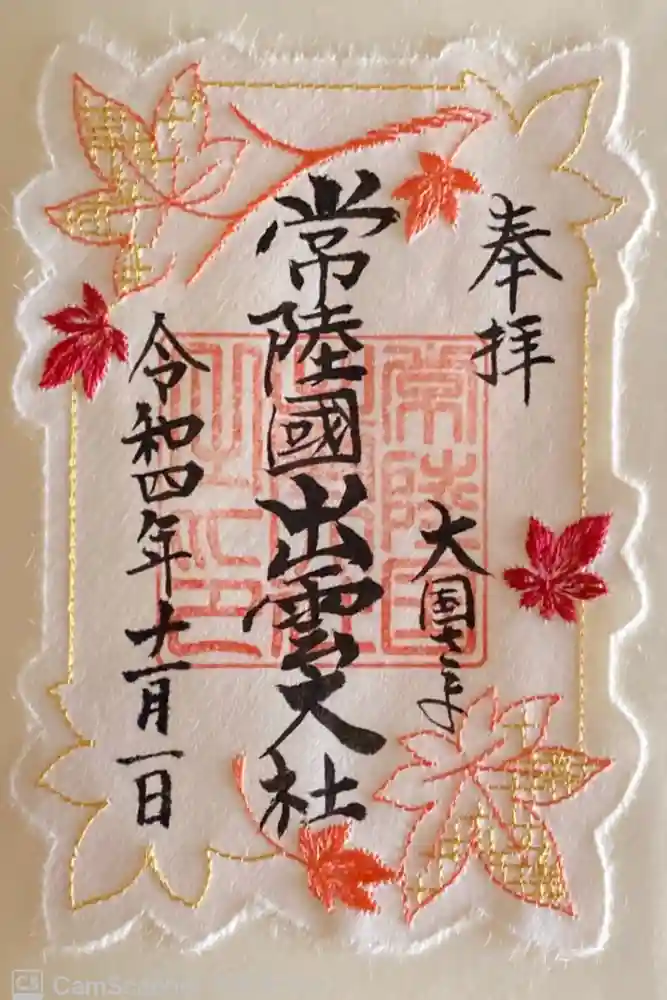 奉拝
大国さま
常陸國出雲大社
常陸国
令和四年十一月一日
CamSca